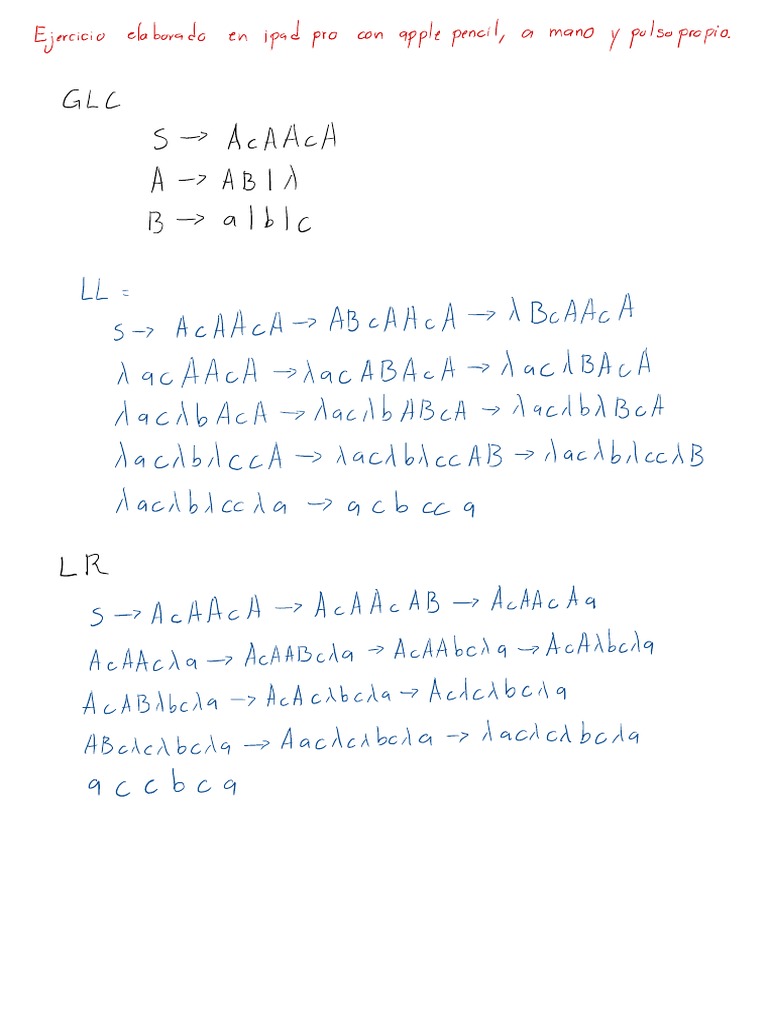 Ejercicio elaborado en ipad pro con apple pencil, a mano y pulso propio.
GLC
S -> AcAAcA
A -> AB|λ
B -> a|b|c
LL =
S -> AcAAcA -> ABcAAcA -> λBcAAcA
λacAAcA -> λacABAcA -> λacλBAcA
λacλbAcA -> λacλbABcA -> λacλbλBcA
λacλbλccA -> λacλbλccAB -> λacλbλccλB
λacλbλccλa -> acbcca
LR
S -> AcAAcA -> AcAAcAB -> AcAAcAa
AcAAcλa -> AcAABcλa -> AcAAbcλa -> AcAλbcλa
AcABλbcλa -> AcAcλbcλa -> Acλcλbcλa
ABcλcλbcλa -> Aacλcλbcλa -> λacλcλbcλa
accbca